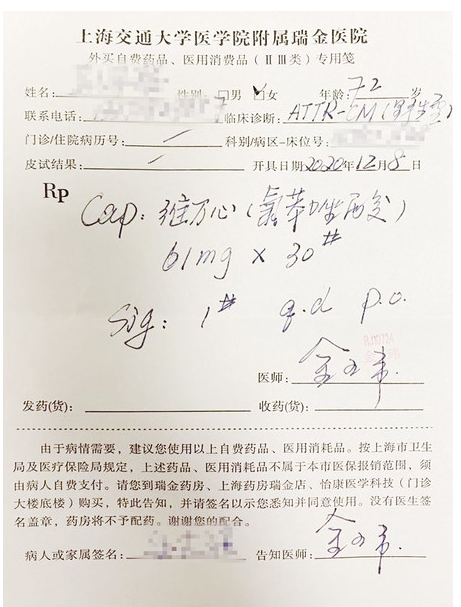 上海交通大学医学院附属瑞金医院
外买自费药品、医用消费品(ⅡⅢ类)专用笺
姓名: 性别:□男 ☑女 年龄:72 岁
联系电话: 临床诊断:ATTR-CM(野生型)
门诊/住院病历号: / 科别/病区-床位号:
皮试结果: / 开具日期2020年12月8日
Rp
Cap: 维万心(氯苯唑酸)
61mg × 30#
Sig: 1# q.d p.o.
医师:
发药(货): 收药(货):
由于病情需要,建议您使用以上自费药品、医用消耗品。按上海市卫生
局及医疗保险局规定,上述药品、医用消耗品不属于本市医保报销范围,须
由病人自费支付。请您到瑞金药房、上海药房瑞金店、怡康医学科技(门诊
大楼底楼)购买,特此告知,并请签名以示您悉知并同意使用。没有医生签
名盖章,药房将不予配药。谢谢您的配合。
病人或家属签名: 告知医师: